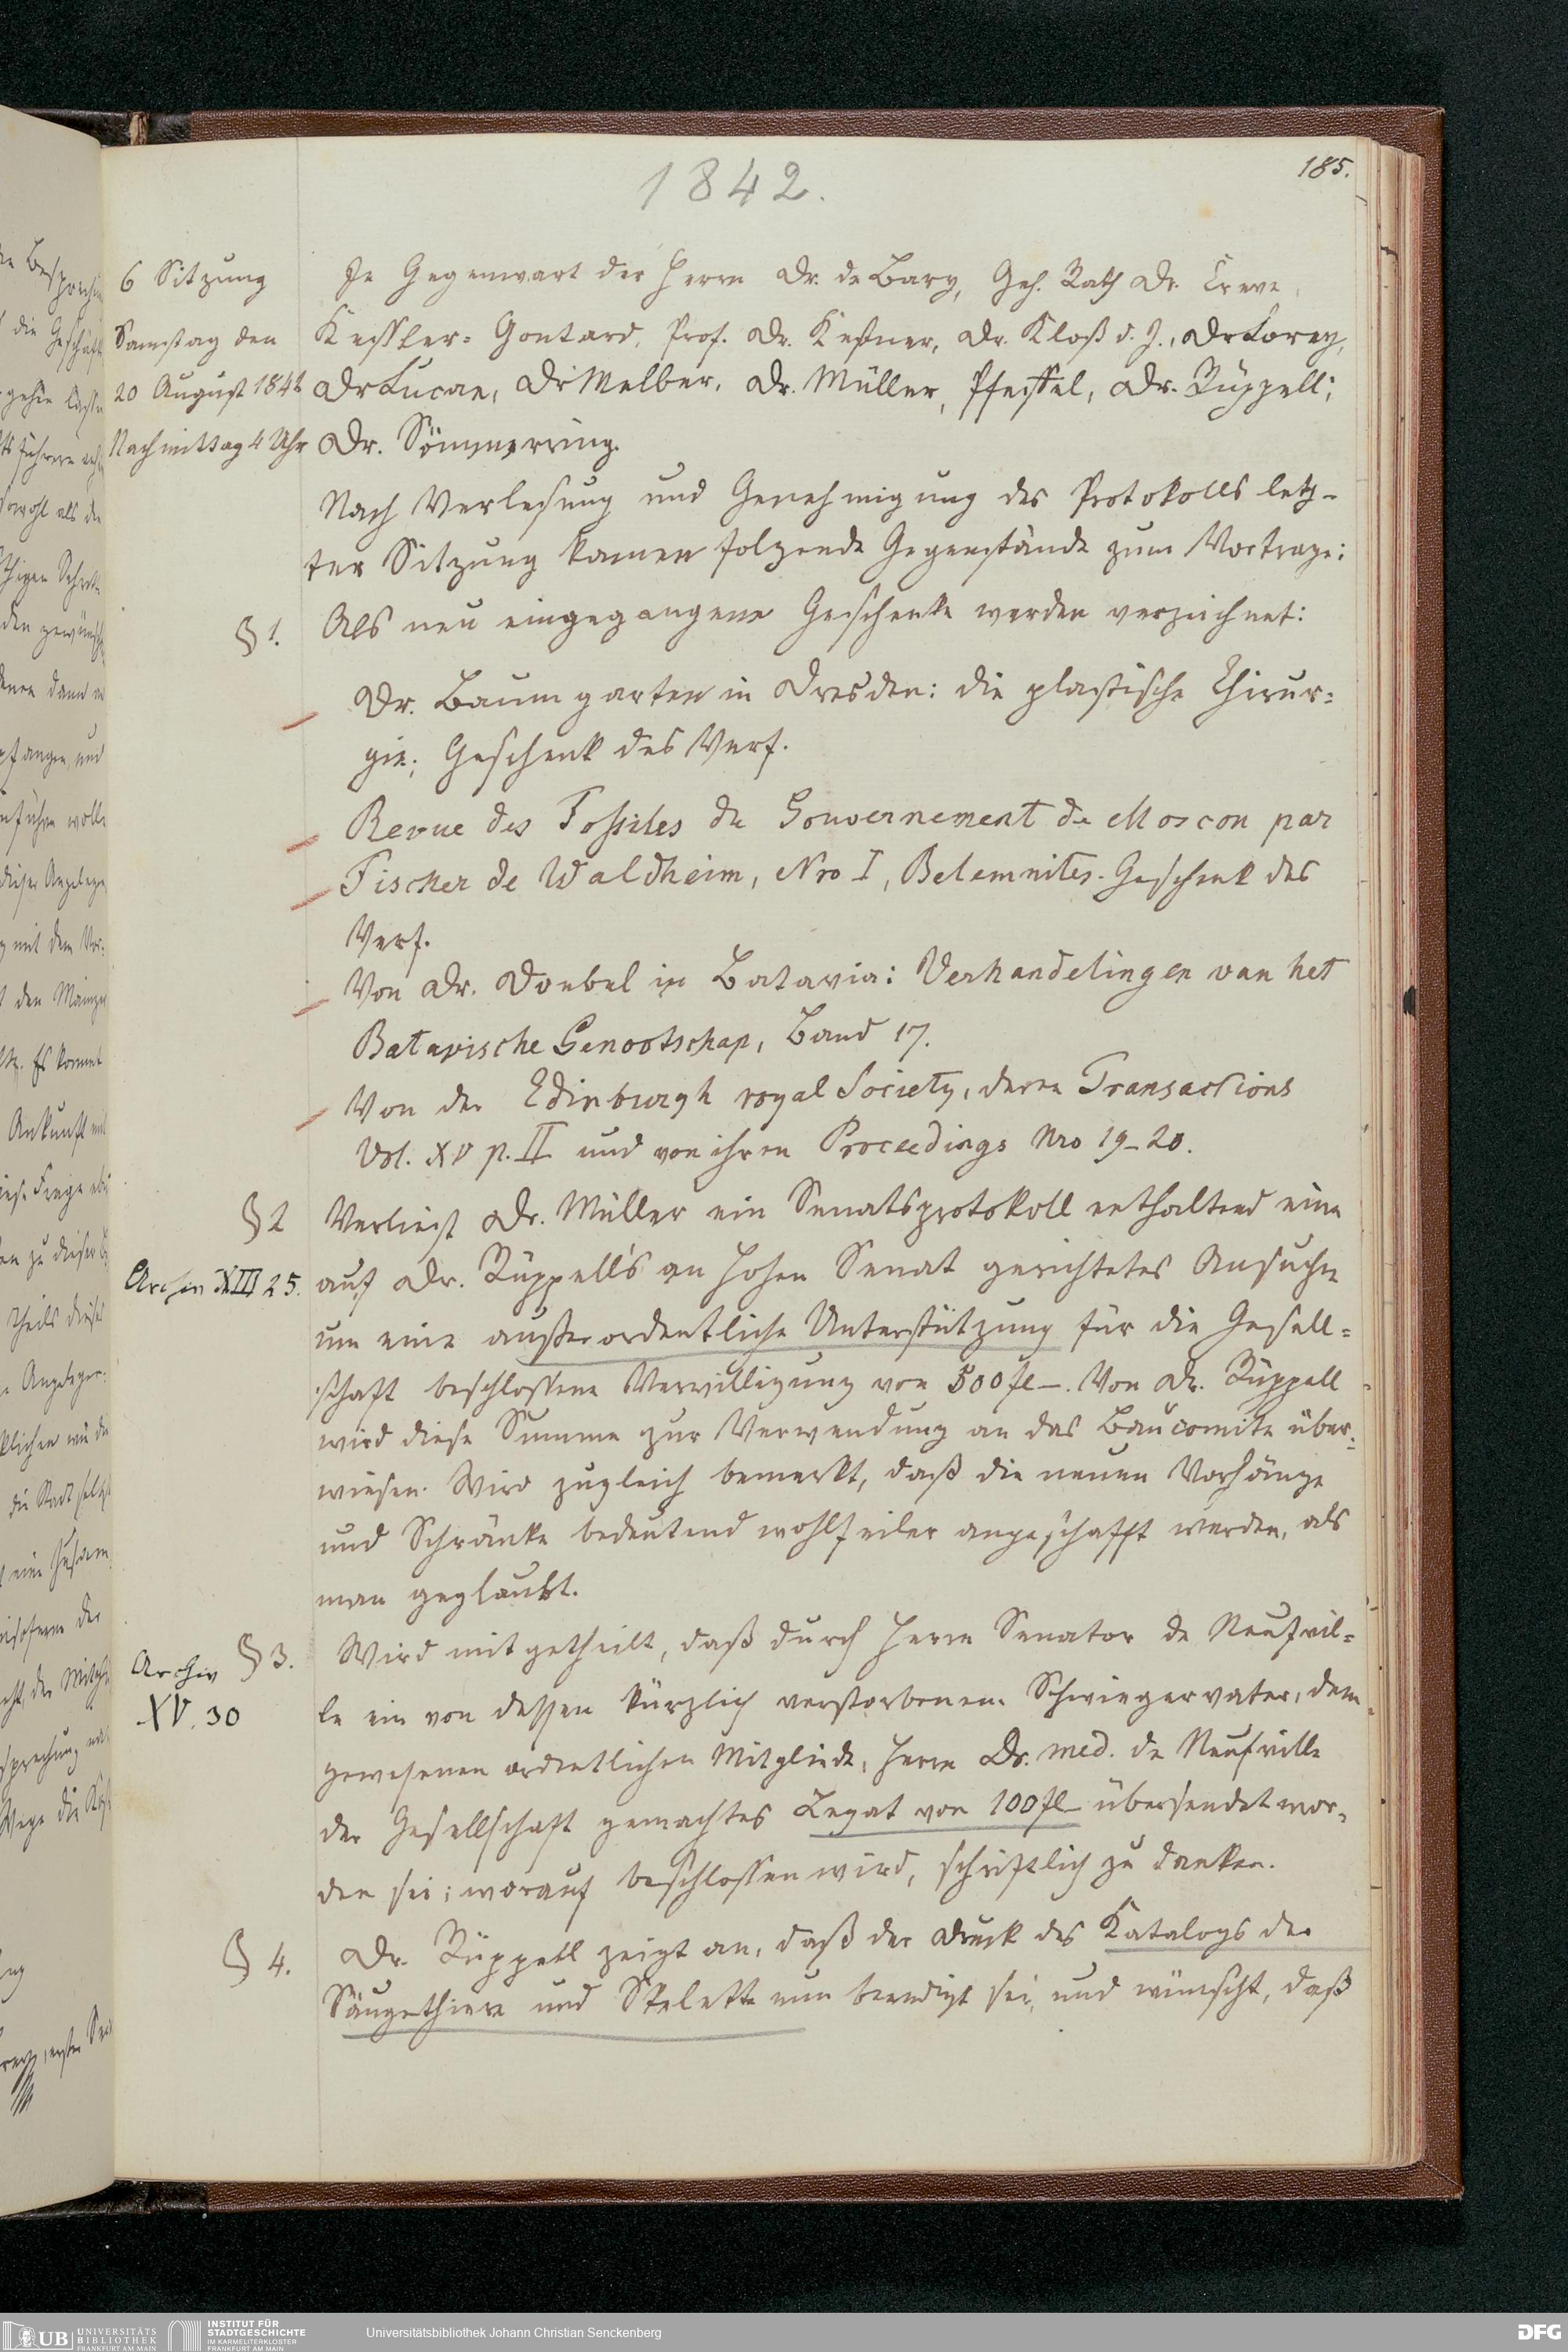 185.
1842.
6 Sitzung
Samstag den
20 August 1842
Nachmittag 4 Uhr
In Gegenwart der Herrn Dr. de Bary, Geh. Rath Dr. Creve,
Kessler-Gontard, Prof. Dr. Kestner, Dr. Kloß d. J., Dr Lorey,
Dr Lucae, Dr Melber, Dr. Müller, Pfeiffel, Dr. Rüppell;
Dr. Sömmerring.
Nach Verlesung und Genehmigung des Protokolls letz-
ter Sitzung kamen folgende Gegenstände zum Vortrage:
§ 1. Als neu eingegangene Geschenke werden verzeichnet:
Dr. Baumgarten in Dresden: die plastische Chirur=
gie; Geschenk des Verf.
Revue des Fossiles du Gouvernement de Moscou par
Fischer de Waldheim, Nro I, Belemnites. Geschenk des
Verf.
Von Dr. Doebel in Batavia: Verhandelingen van het
Batavische Genootschap, Band 17.
Von der Edinburgh royal Society, deren Transactions
Vol. XV p. II und von ihren Proceedings Nro 19-20.
§ 2 Verliest Dr. Müller ein Senatsprotokoll enthaltend eine
Archiv XIII 25.
auf Dr. Rüppell's an hohen Senat gerichtetes Ansuchen
um eine außerordentliche Unterstützung für die Gesell=
schaft beschlossene Verwilligung von 500 fl—. Von Dr. Rüppell
wird diese Summe zur Verwendung an das Baucomite über=
wiesen. Wird zugleich bemerkt, daß die neuen Vorhänge
und Schränke bedeutend wohlfeiler angeschafft werden, als
man geglaubt.
Archiv § 3.
XV. 30
Wird mitgetheilt, daß durch Herrn Senator de Neufvil=
le ein von dessen kürzlich verstorbenen Schwiegervater, dem
gewesenen ordentlichen Mitgliede, Herrn Dr. med. de Neufville
der Gesellschaft gemachtes Legat von 100 fl— übersendet wor=
den sei; worauf beschlossen wird, schriftlich zu danken.
§ 4. Dr. Rüppell zeigt an, daß der Druck des Katalogs der
Säugethiere und Skelette nun beendigt sei, und wünscht, daß
UB UNIVERSITÄTS
BIBLIOTHEK
FRANKFURT AM MAIN
INSTITUT FÜR
STADTGESCHICHTE
IM KARMELITERKLOSTER
FRANKFURT AM MAIN
Universitätsbibliothek Johann Christian Senckenberg
DFG